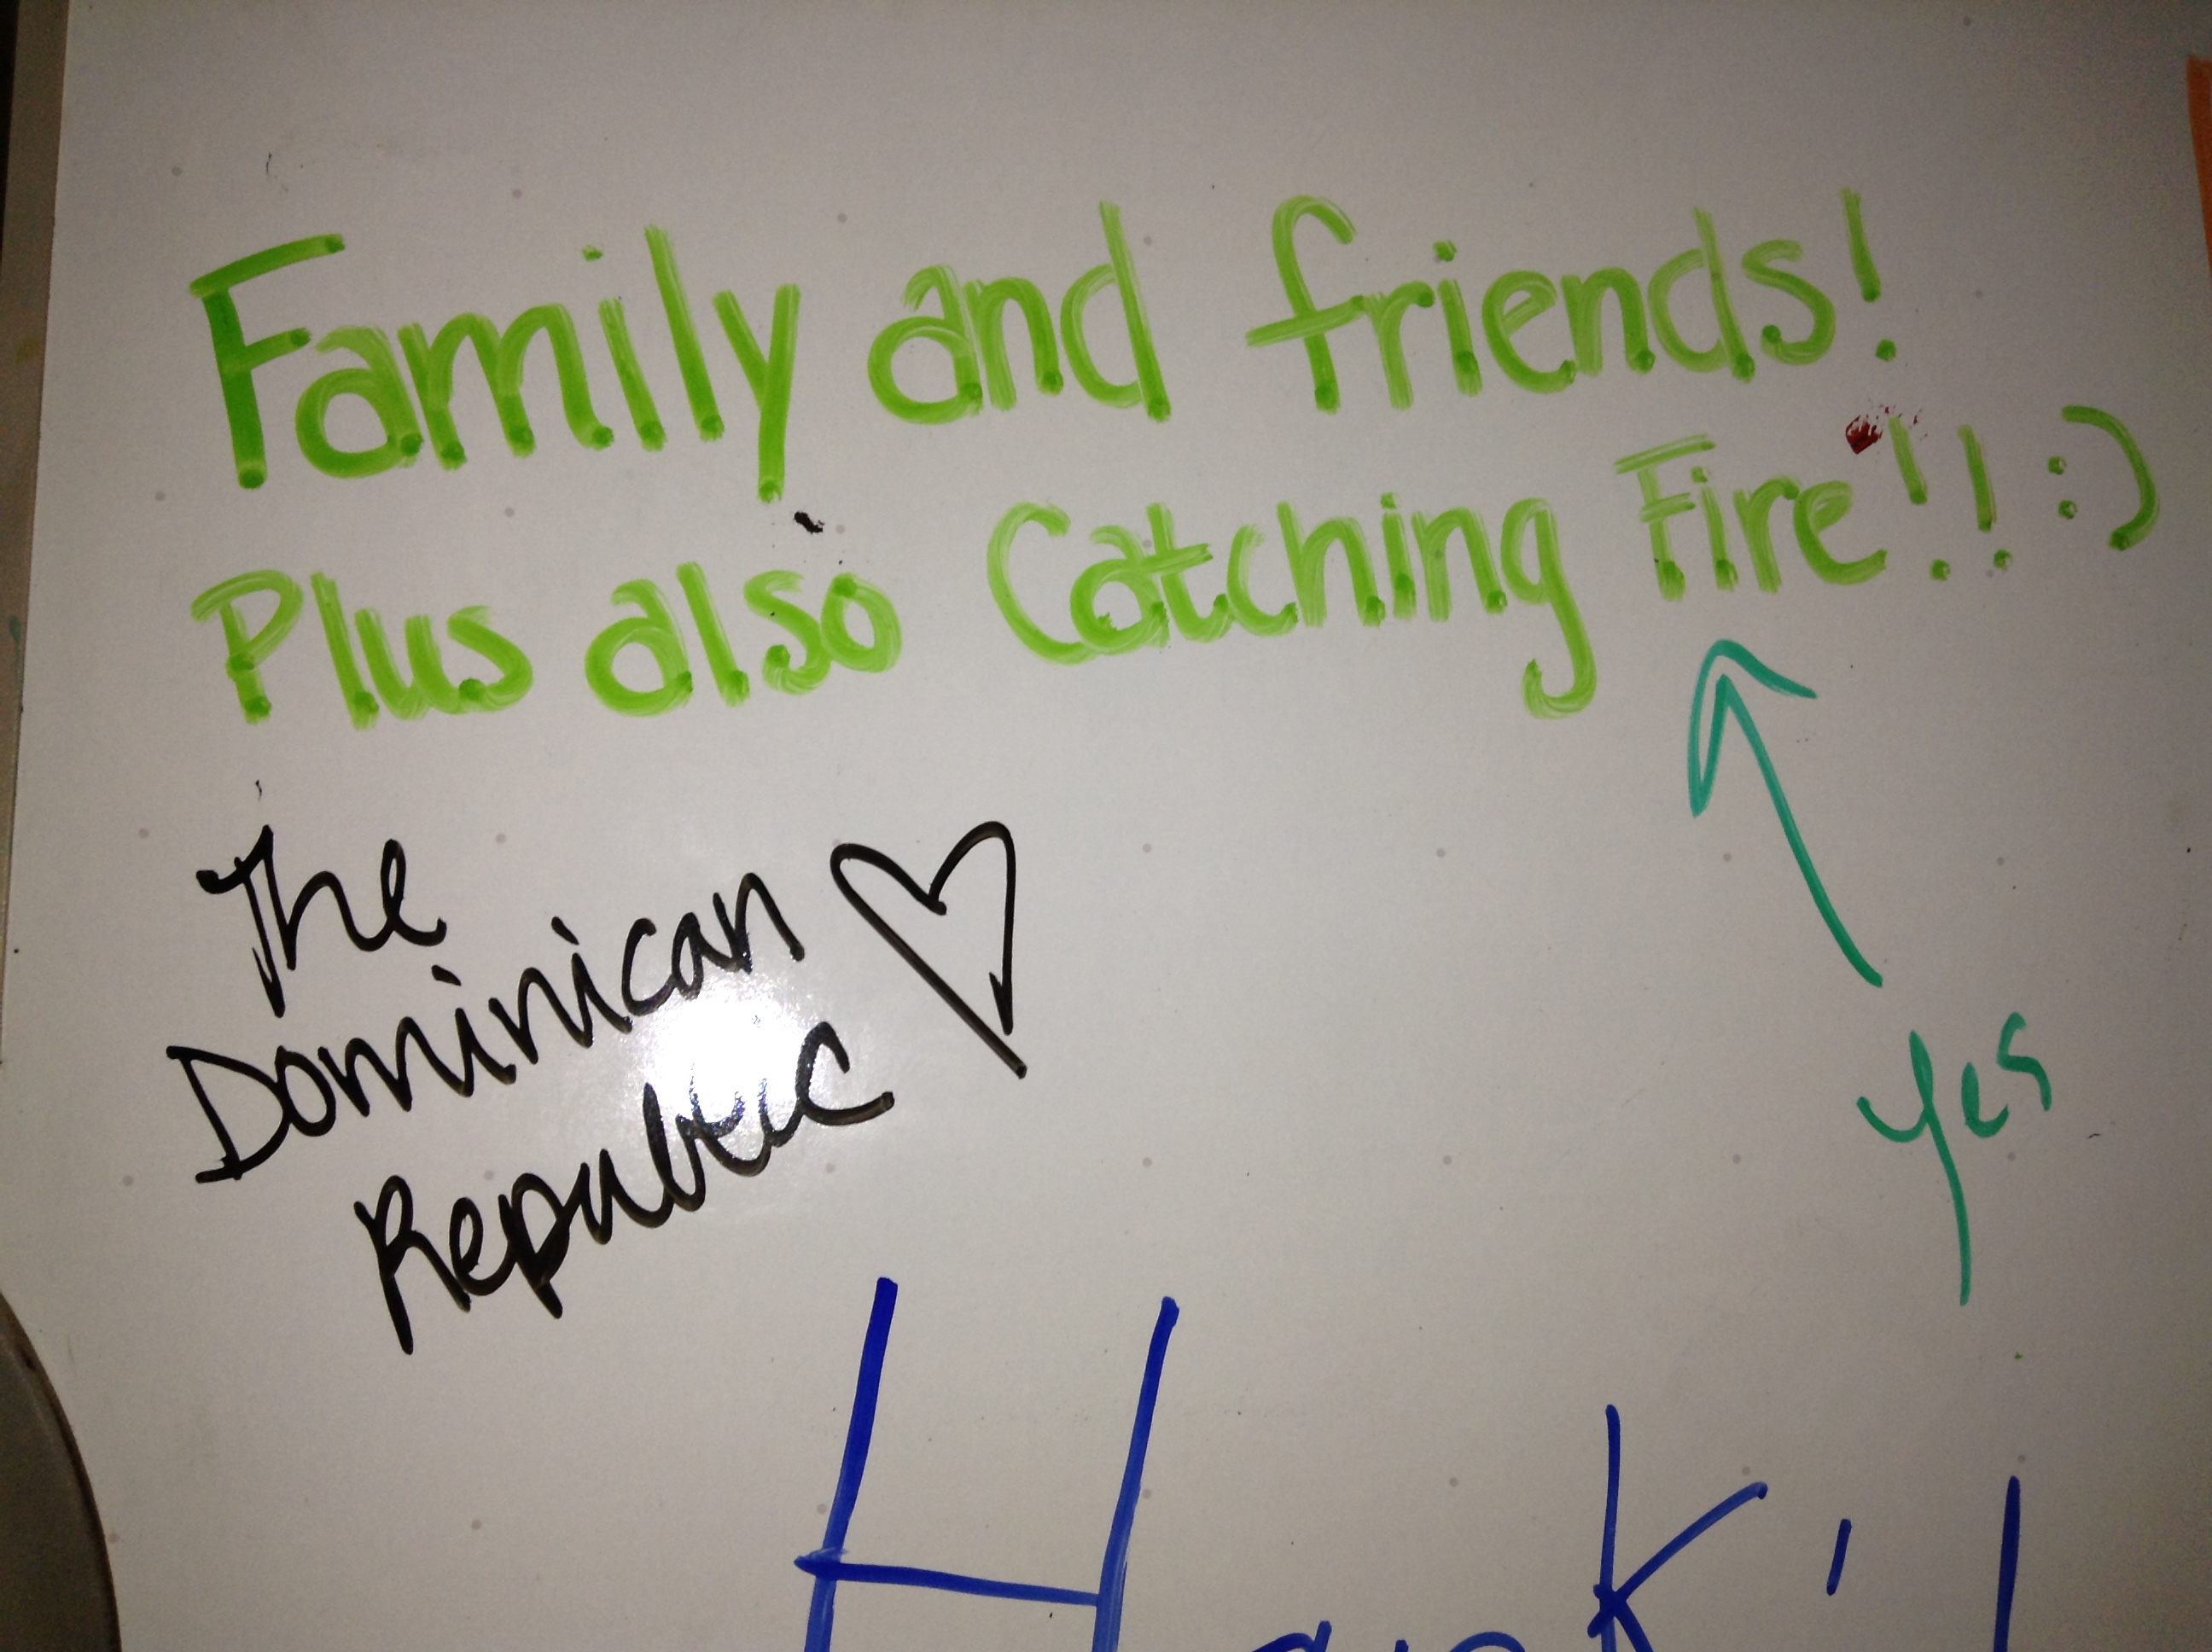 Family and friends!
Plus also Catching Fire!! :)
The
Dominican
Republic ♡
yes